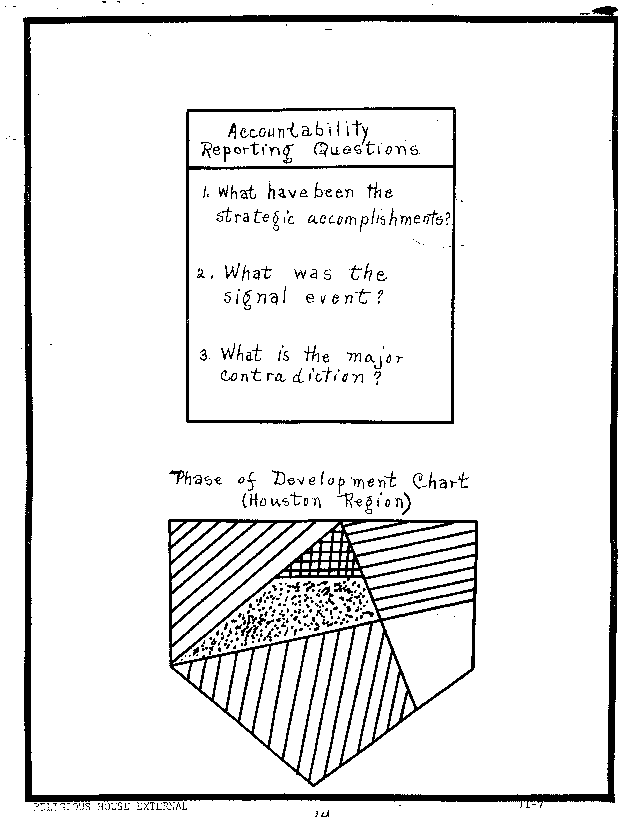 Accountability
Reporting Questions
1. What have been the
strategic accomplishments?
2. What was the
signal event?
3. What is the major
contradiction?
Phase of Development Chart
(Houston Region)
RELIGIOUS HOUSE EXTERNAL
II-7
14